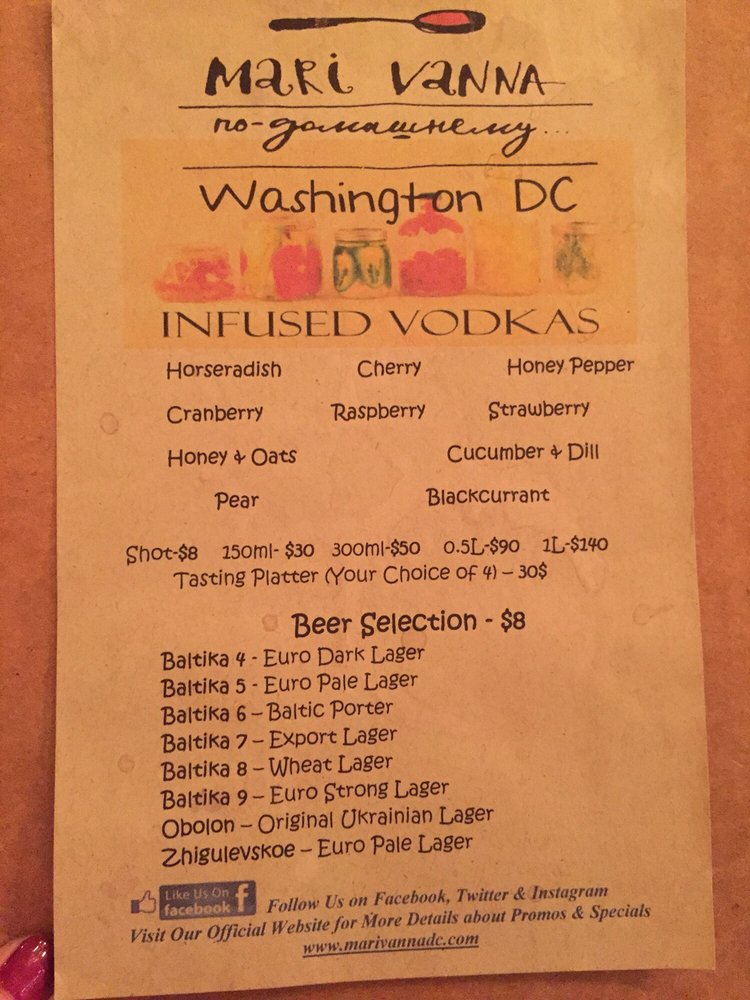 MARI VANNA
по-домашнему...
Washington DC
INFUSED VODKAS
Horseradish Cherry Honey Pepper
Cranberry Raspberry Strawberry
Honey & Oats Cucumber & Dill
Pear Blackcurrant
Shot-$8 150ml- $30 300ml-$50 0.5L-$90 1L-$140
Tasting Platter (Your Choice of 4) – 30$
Beer Selection - $8
Baltika 4 - Euro Dark Lager
Baltika 5 - Euro Pale Lager
Baltika 6 – Baltic Porter
Baltika 7 – Export Lager
Baltika 8 – Wheat Lager
Baltika 9 – Euro Strong Lager
Obolon – Original Ukrainian Lager
Zhigulevskoe – Euro Pale Lager
Like Us On
facebook f
Follow Us on Facebook, Twitter & Instagram
Visit Our Official Website for More Details about Promos & Specials
www.marivannadc.com